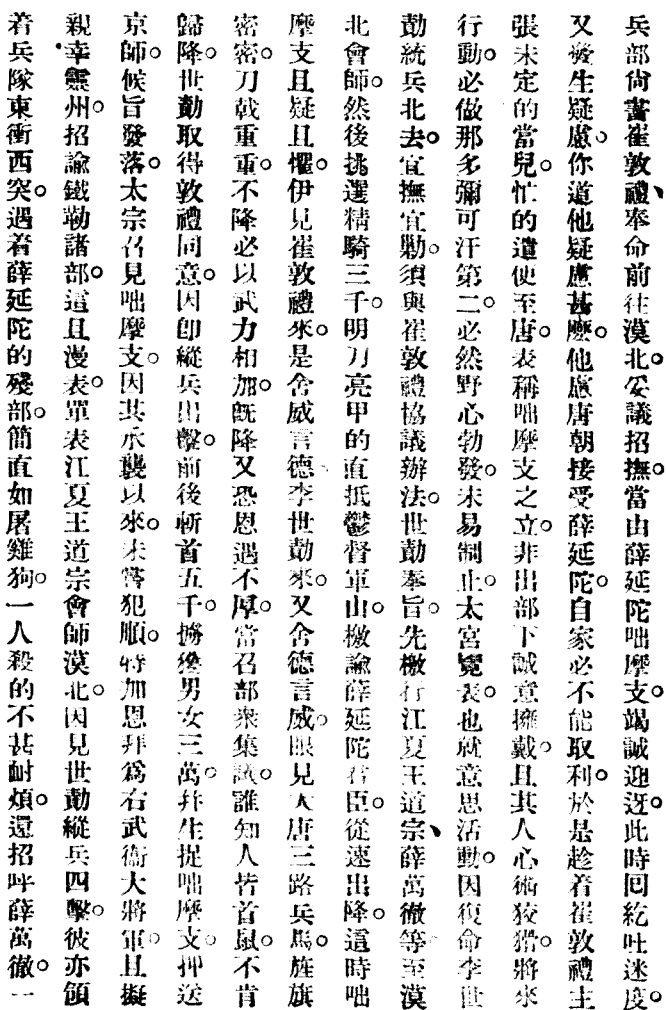 兵部尙書崔敦禮、奉命前往漠北。妥議招撫當由薛延陀咄摩支竭誠迎迓此時回紇吐迷度。
又發生疑慮、你道他疑慮甚麼。他慮唐朝接受薛延陀。自家必不能取利。於是趁着崔敦禮主
張未定的當兒。忙的遣使至唐。表稱咄摩支之立。非出部下誠意擁戴。且其人心術狡猾。將來
行動。必做那多彌可汗第二。必然野心勃發。未易制止。太宮覽表。也就意思活動。因復命李世
勣統兵北去。宜撫宜勦。須與崔敦禮協議辦法。世勣奉旨。先檄行江夏王道宗、薛萬徹等至漠
北會師。然後挑選精騎三千。明刀亮甲的直抵鬱督軍山。檄諭薛延陀君臣。從速出降。這時咄
摩支且疑且懼。伊見崔敦禮來。是舍威言德。李世勣來。又舍德言威。眼見大唐三路兵馬。旌旗
密密。刀戟重重。不降必以武力相加。旣降又恐恩遇不厚。當召部衆集議。誰知人皆首鼠。不肯
歸降。世勣取得敦禮同意。因卽縱兵出擊。前後斬首五千。擄獲男女三萬。幷生捉咄摩支。押送
京師。候旨發落。太宗召見咄摩支。因其承襲以來。未嘗犯順。特加恩拜爲右武衞大將軍。且擬
親幸靈州。招諭鐵勒諸部。這且漫表。單表江夏王道宗會師漠北。因見世勣縱兵四擊。彼亦領
着兵隊東衝西突。遇着薛延陀的殘部。簡直如屠雞狗。一人殺的不甚耐煩。還招呼薛萬徹。一